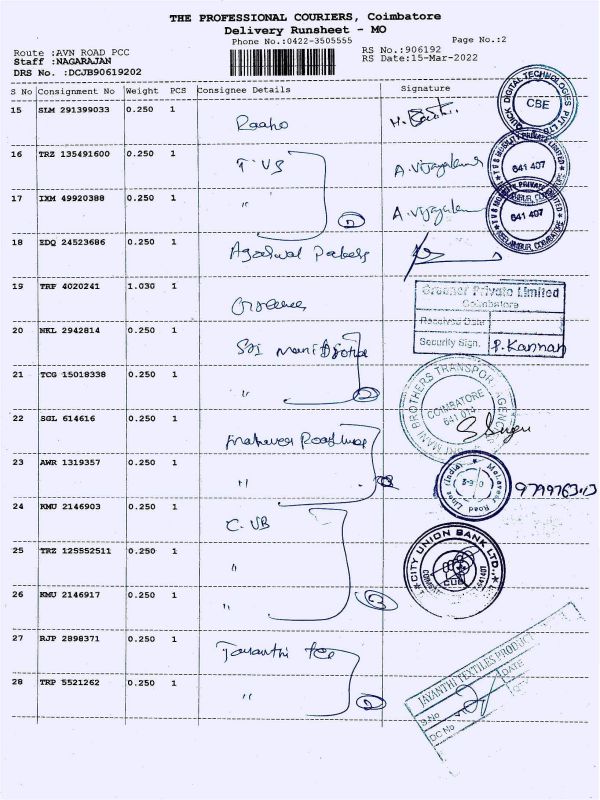 THE PROFESSIONAL COURIERS, Coimbatore
Delivery Runsheet - MO
Phone No.:0422-3505555
Page No.:2
Route :AVN ROAD PCC
RS No.:906192
Staff :NAGARAJAN
RS Date:15-Mar-2022
DRS No. :DCJB90619202
S No Consignment No Weight PCS Consignee Details Signature
15 SLM 291399033 0.250 1
16 TRZ 135491600 0.250 1 T VS A. Vijayakumar
17 IXM 49920388 0.250 1 " A. Vijayakumar
18 EDQ 24523686 0.250 1 Agarwal Packers
19 TRP 4020241 1.030 1
20 NKL 2942814 0.250 1 Sri Mani Brothe
21 TCG 15018338 0.250 1 "
22 SGL 614616 0.250 1 Mahaveer Roadlines
23 AWR 1319357 0.250 1 " 9799763113
24 KMU 2146903 0.250 1 C. UB
25 TRZ 125552511 0.250 1 "
26 KMU 2146917 0.250 1 "
27 RJP 2898371 0.250 1 Jayanthi Tex
28 TRP 5521262 0.250 1 "
QUICK DIGITAL TECHNOLOGIES PVT LTD
CBE
TVS MOBILITY PRIVATE LIMITED
641 407
NEELAMBUR, COIMBATORE
TVS MOBILITY PRIVATE LIMITED
641 407
NEELAMBUR, COIMBATORE
Private Limited
Coimbatore
Received Date
Security Sign. P. Kannan
SRI MANI BROTHERS TRANSPORT AGENCY
COIMBATORE
641 014
Road Lines (India)
CITY UNION BANK LTD.,
CUB
641407
JAYANTHI TEXTILES PRODUCT
S.No
DATE
DC No